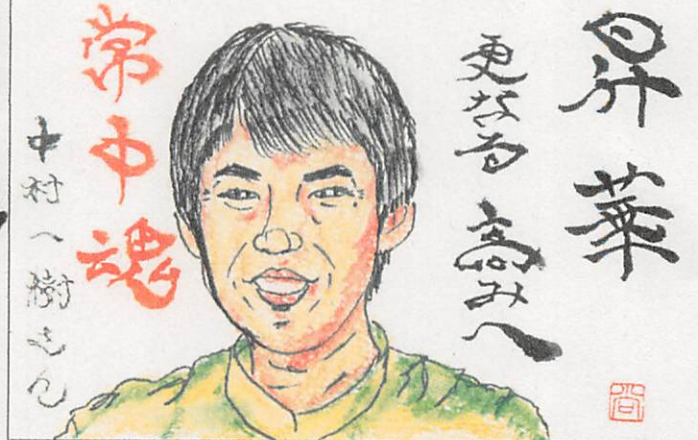 昇華
更なる高みへ
常中魂
中村一樹さん
尚